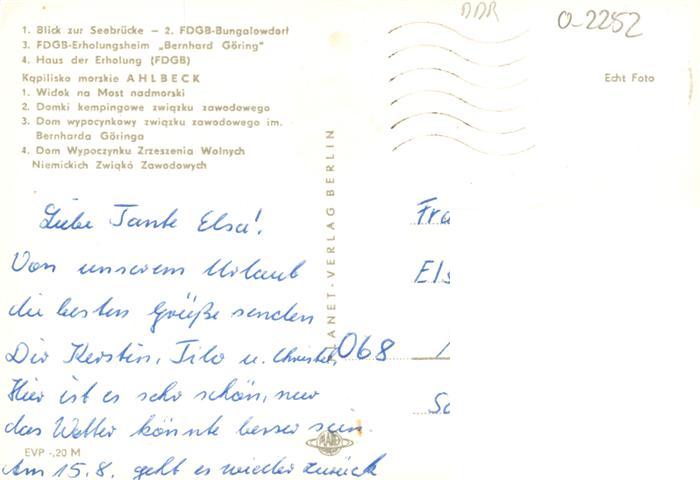 DDR
O-2252
1. Blick zur Seebrücke – 2. FDGB-Bungalowdorf
3. FDGB-Erholungsheim „Bernhard Göring"
4. Haus der Erholung (FDGB)
Kąpilisko morskie AHLBECK
1. Widok na Most nadmorski
2. Domki kempingowe związku zawodowego
3. Dom wypocynkowy związku zawodowego im.
Bernharda Göringa
4. Dom Wypoczynku Zrzeszenia Wolnych
Niemickich Zwiąkó Zawodowych
Echt Foto
PLANET-VERLAG BERLIN
Liebe Tante Elsa!
Von unserem Urlaub
die besten Grüße senden
Dir Kerstin, Tilo u. Christel,
Hier ist es sehr schön, nur
das Wetter könnte besser sein.
Am 15.8. geht es wieder zurück
Fra
Els
068
Sc
EVP -,20 M
PLANET